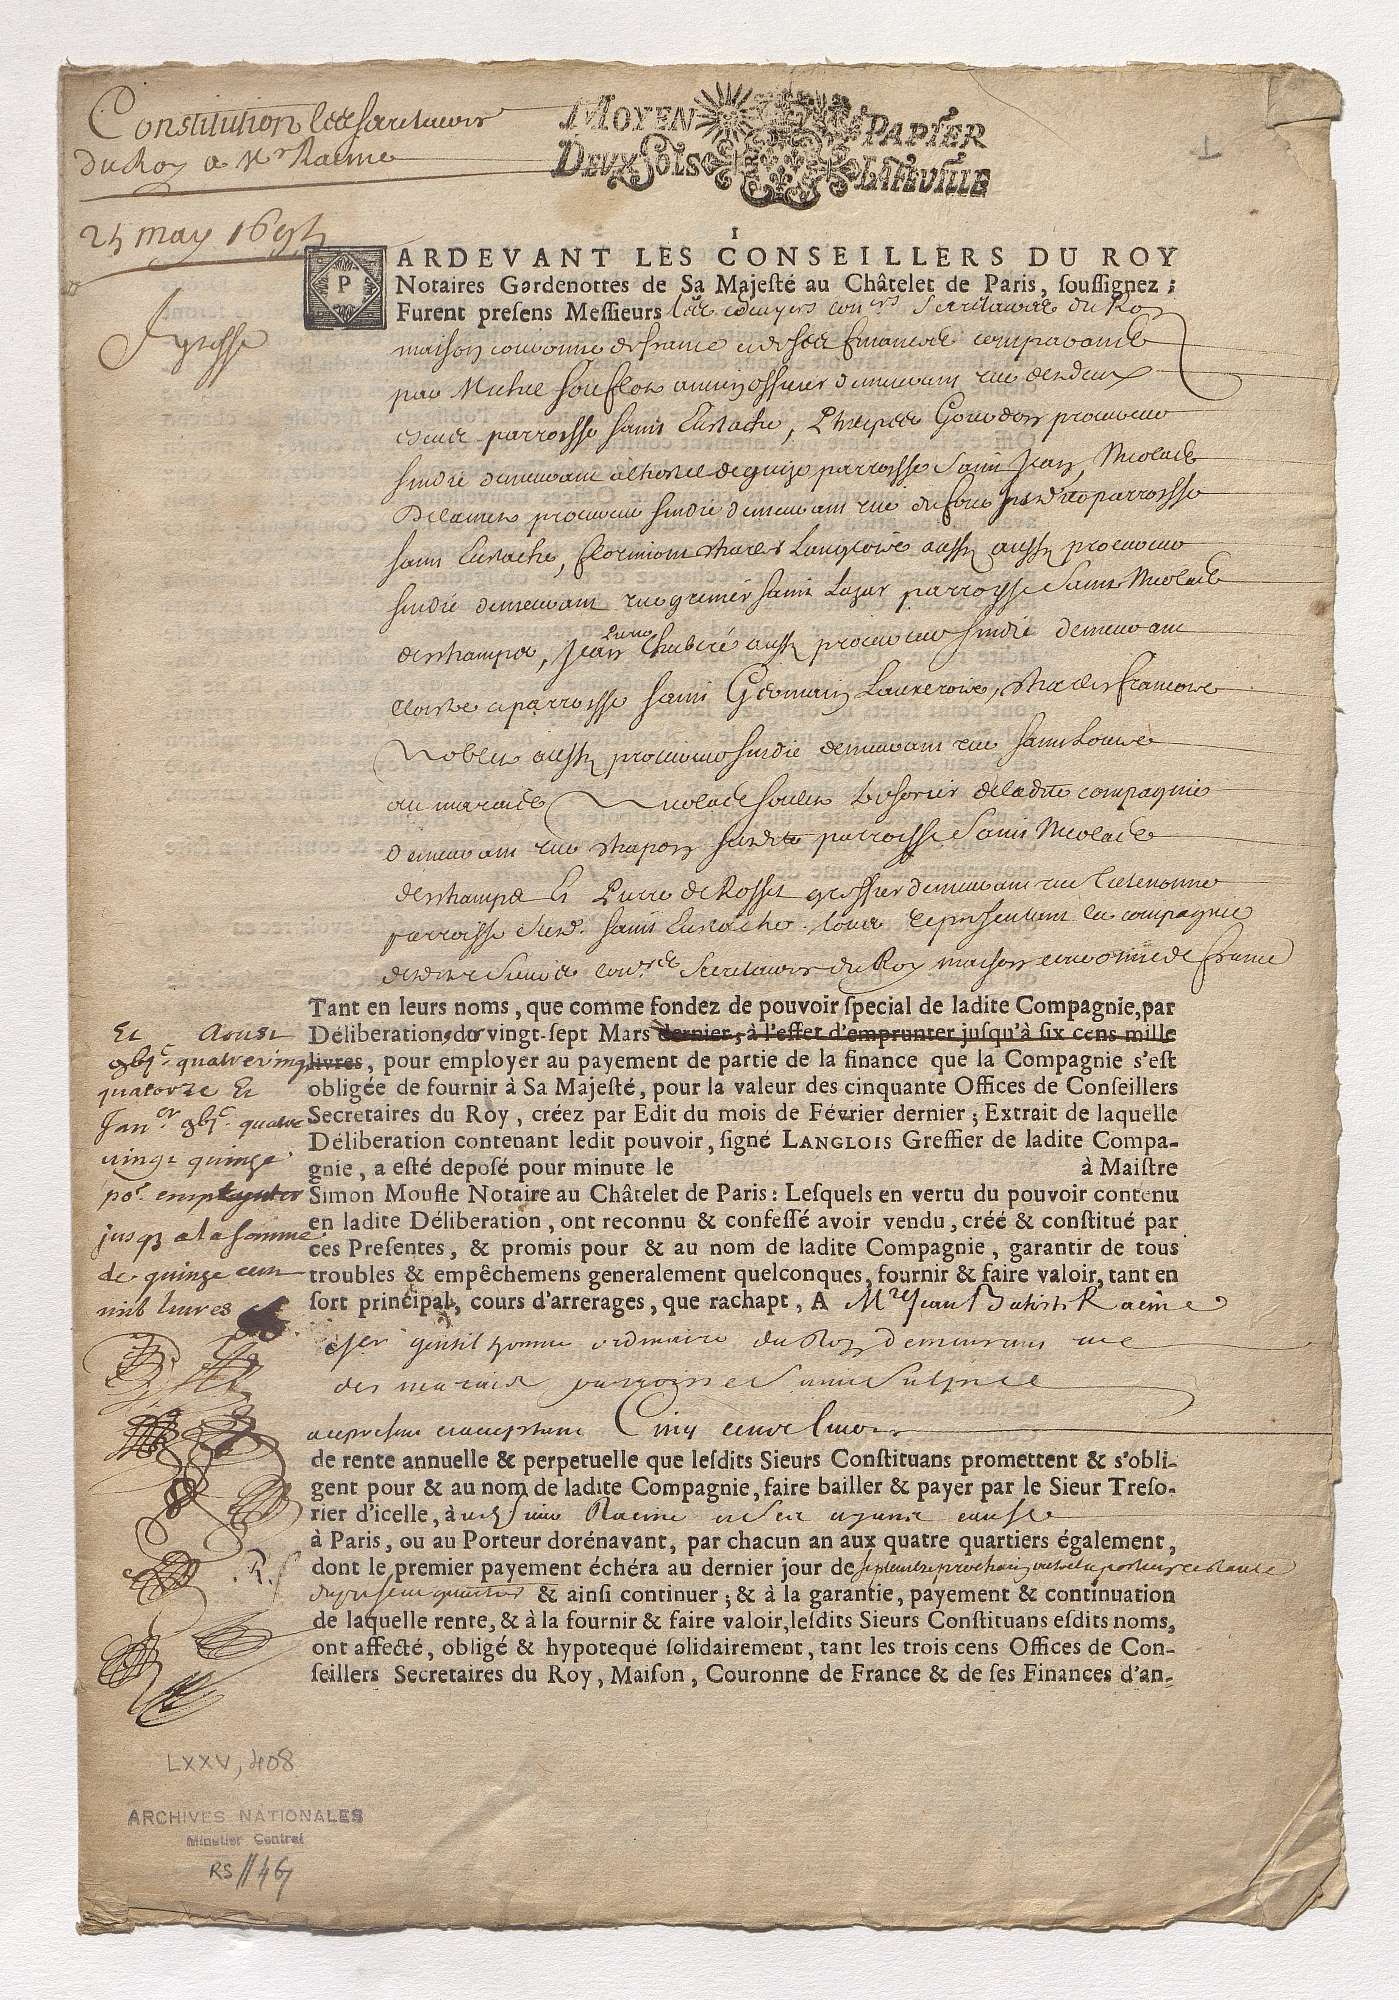 Constitution les secretaires
du Roy a Mr Racine
25 may 1695
J grosse
MOYEN PAPIER
DEUX SOLS LA FEUILLE
1
PARDEVANT LES CONSEILLERS DU ROY
Notaires Gardenottes de Sa Majesté au Châtelet de Paris, soussignez;
Furent presens Messieurs les escuyers coners Secretaires du Roy
maison couronne de france et de ses finances comparans
par Michel Souflot ancien officier demeurant rue des deux
escus parroisse saint Eustache, Gourdon procureur
sindic demeurant a l'hostel de guise parroisse Saint Jean, Nicolas
procureur sindic demeurant rue du four susdite parroisse
saint Eustache, Florimont Charles Langlois aussy aussy procureur
sindic demeurant rue grenier saint Lazar parroisse Saint Nicolas
des champs, Jean Chuberé aussy procureur sindic demeurant
cloistre et parroisse saint Germain Lauxerois, Charles francois
Noblet aussy procureur sindic demeurant rue saint Louis
au marais Nicolas tresorier de ladite compagnie
demeurant rue chapon susdite parroisse Saint Nicolas
des champs Et Pierre de Rosset greffier demeurant rue Tictonne
parroisse saint Eustache. Tous representant la compagnie
desdits Sieurs coners Secretaires du Roy maison couronne de france
Tant en leurs noms, que comme fondez de pouvoir special de ladite Compagnie, par
Déliberation du vingt-sept Mars dernier, à l'effet d'emprunter jusqu'à six cens mille
livres, pour employer au payement de partie de la finance que la Compagnie s'est
obligée de fournir à Sa Majesté, pour la valeur des cinquante Offices de Conseillers
Secretaires du Roy, créez par Edit du mois de Février dernier; Extrait de laquelle
Déliberation contenant ledit pouvoir, signé LANGLOIS Greffier de ladite Compa-
gnie, a esté deposé pour minute le à Maistre
Simon Moufle Notaire au Châtelet de Paris: Lesquels en vertu du pouvoir contenu
en ladite Déliberation, ont reconnu & confessé avoir vendu, créé & constitué par
ces Presentes, & promis pour & au nom de ladite Compagnie, garantir de tous
troubles & empêchemens generalement quelconques, fournir & faire valoir, tant en
sort principal, cours d'arrerages, que rachapt, A Mre Jean Batiste Racine
eser gentilhomme ordinaire du Roy demeurant rue
des marais parroisse Saint Sulpice
a ce present et acceptant Cinq cens livres
de rente annuelle & perpetuelle que lesdits Sieurs Constituans promettent & s'obli-
gent pour & au nom de ladite Compagnie, faire bailler & payer par le Sieur Treso-
rier d'icelle, audit sieur Racine et ses ayans cause
à Paris, ou au Porteur dorénavant, par chacun an aux quatre quartiers également,
dont le premier payement échéra au dernier jour de septembre prochain
& ainsi continuer; & à la garantie, payement & continuation
de laquelle rente, & à la fournir & faire valoir, lesdits Sieurs Constituans esdits noms,
ont affecté, obligé & hypotequé solidairement, tant les trois cens Offices de Con-
seillers Secretaires du Roy, Maison, Couronne de France & de ses Finances d'an-
Et Aoust
gbjc. quatre vingt
quatorze Et
Janer gbjc. quatre
vingt quinze
por. emprunter
jusqz a la somme
de quinze cent
mil livres
LXXV, 408
ARCHIVES NATIONALES
Minutier Central
RS//467